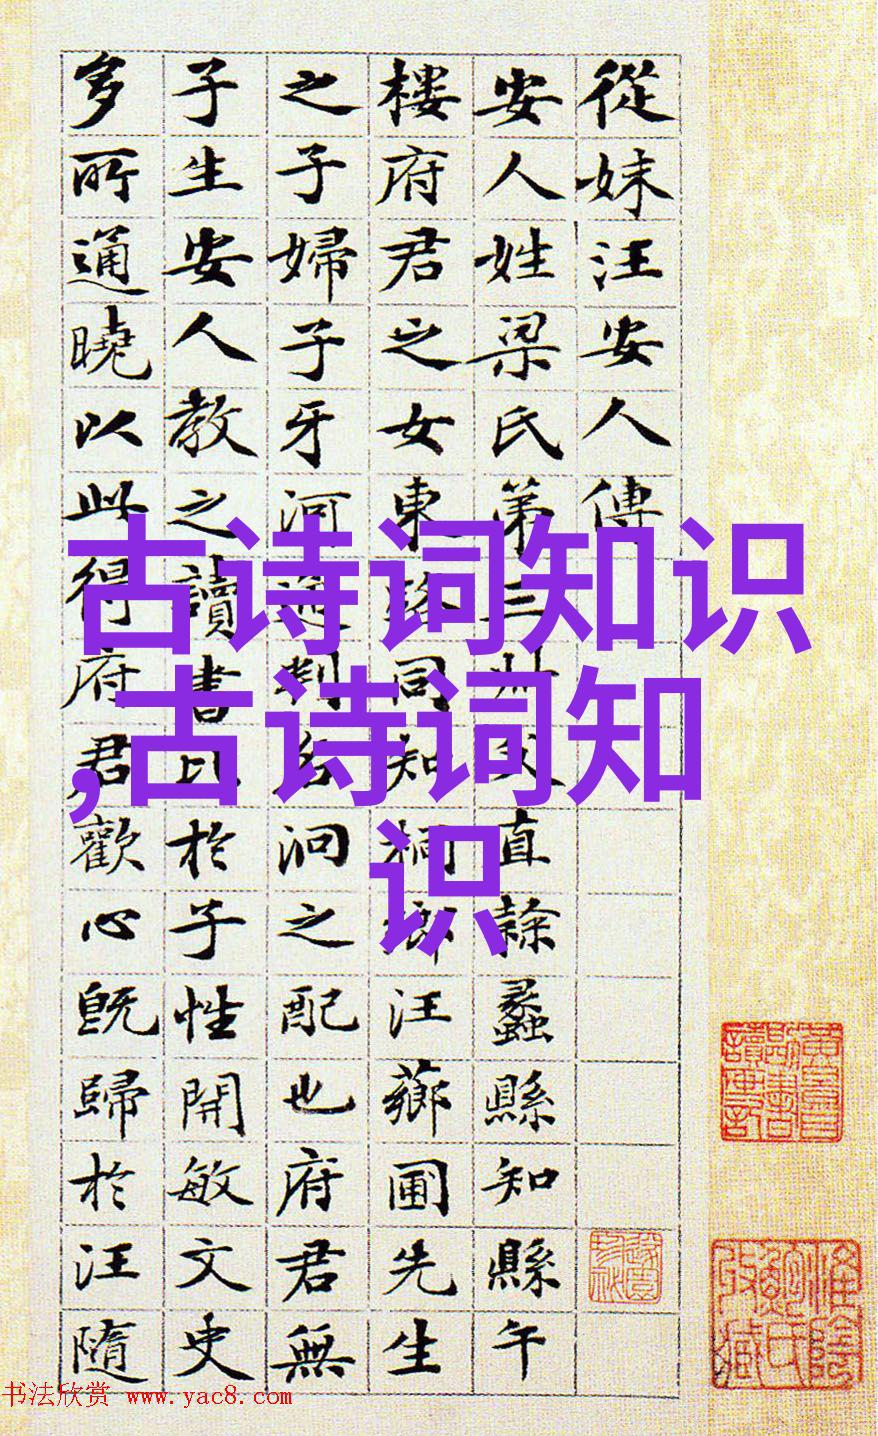 從妹汪安人傳
安人姓梁氏第三父直隸蠡縣知縣午
樓府君之女東路同知桐鄉汪薌圃先生
之子婦子牙河通判名泂之配也府君無
子生安人教之讀書比於子性開敏文史
多所通曉以此得府君歡心既歸於汪隨
古诗词知识
,古诗词知
识
书法欣赏 www.yac8.com